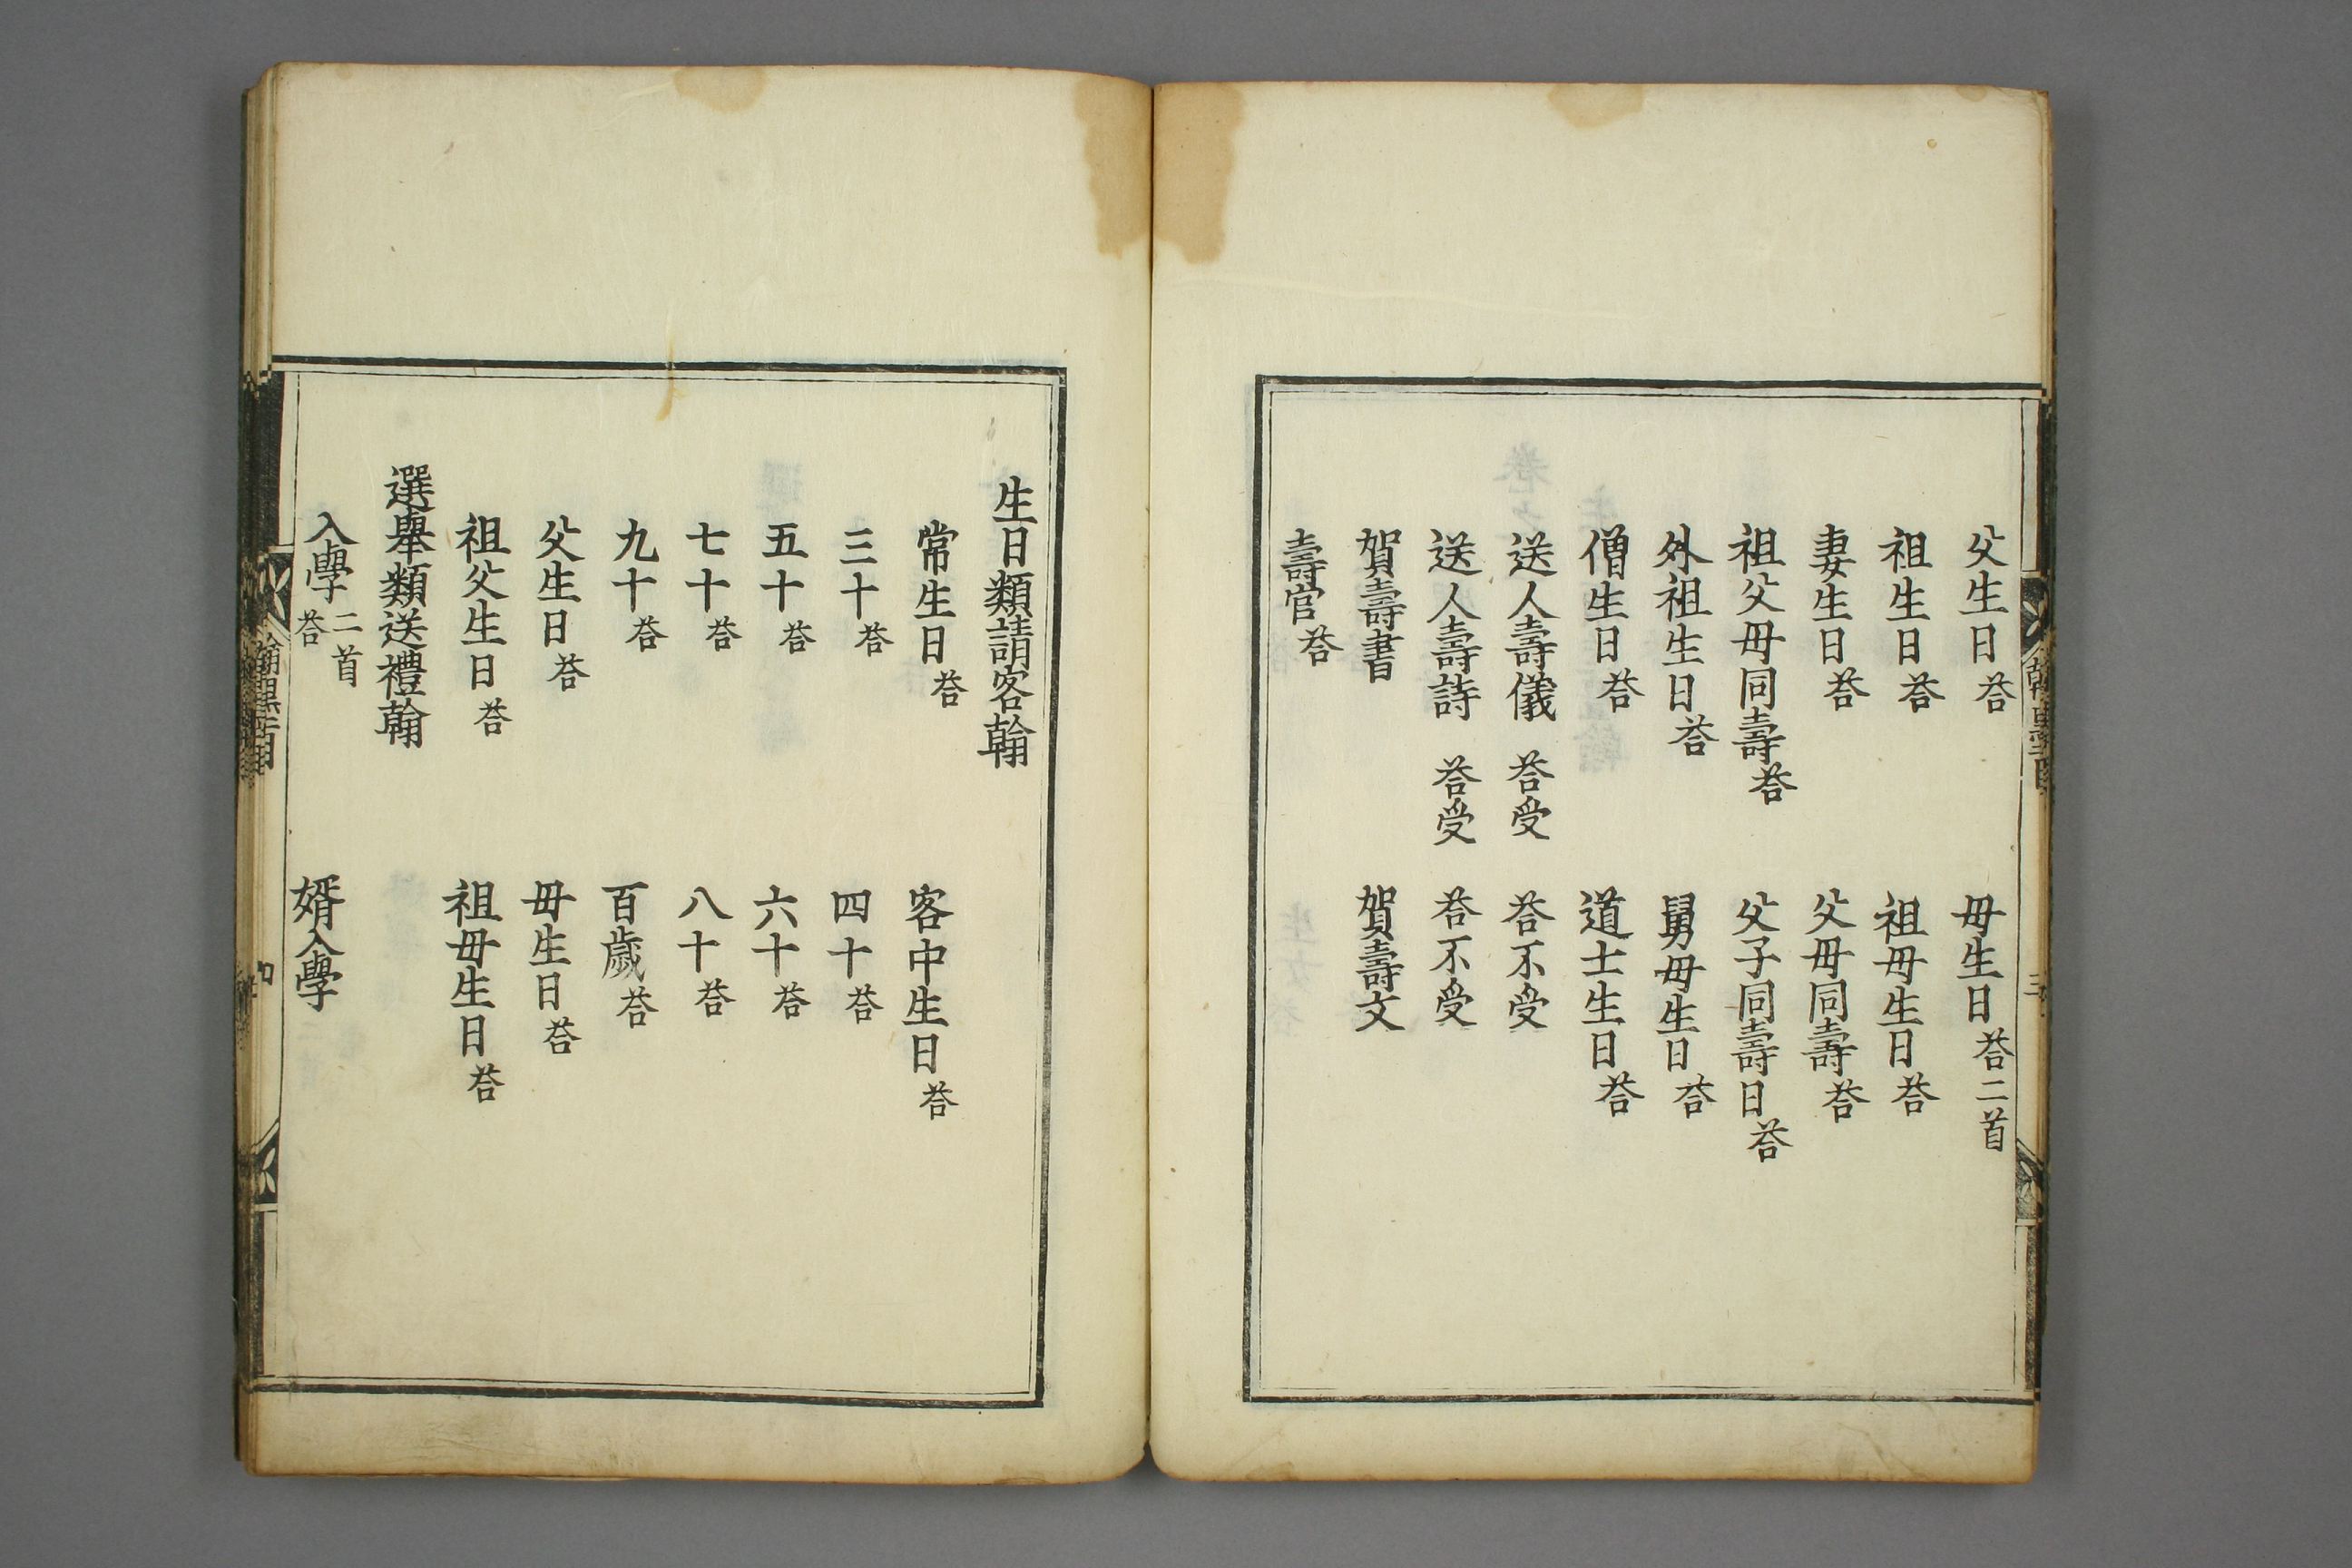 父生日荅　母生日荅二首
祖生日荅　祖母生日荅
妻生日荅　父母同壽荅
祖父母同壽荅　父子同壽日荅
外祖生日荅　舅母生日荅
僧生日荅　道士生日荅
送人壽儀　荅受　荅不受
送人壽詩　荅受　荅不受
賀壽書　賀壽文
壽官荅
生日類請客翰
常生日荅　客中生日荅
三十荅　四十荅
五十荅　六十荅
七十荅　八十荅
九十荅　百歲荅
父生日荅　母生日荅
祖父生日荅　祖母生日荅
選舉類送禮翰
入學二首荅　婿入學